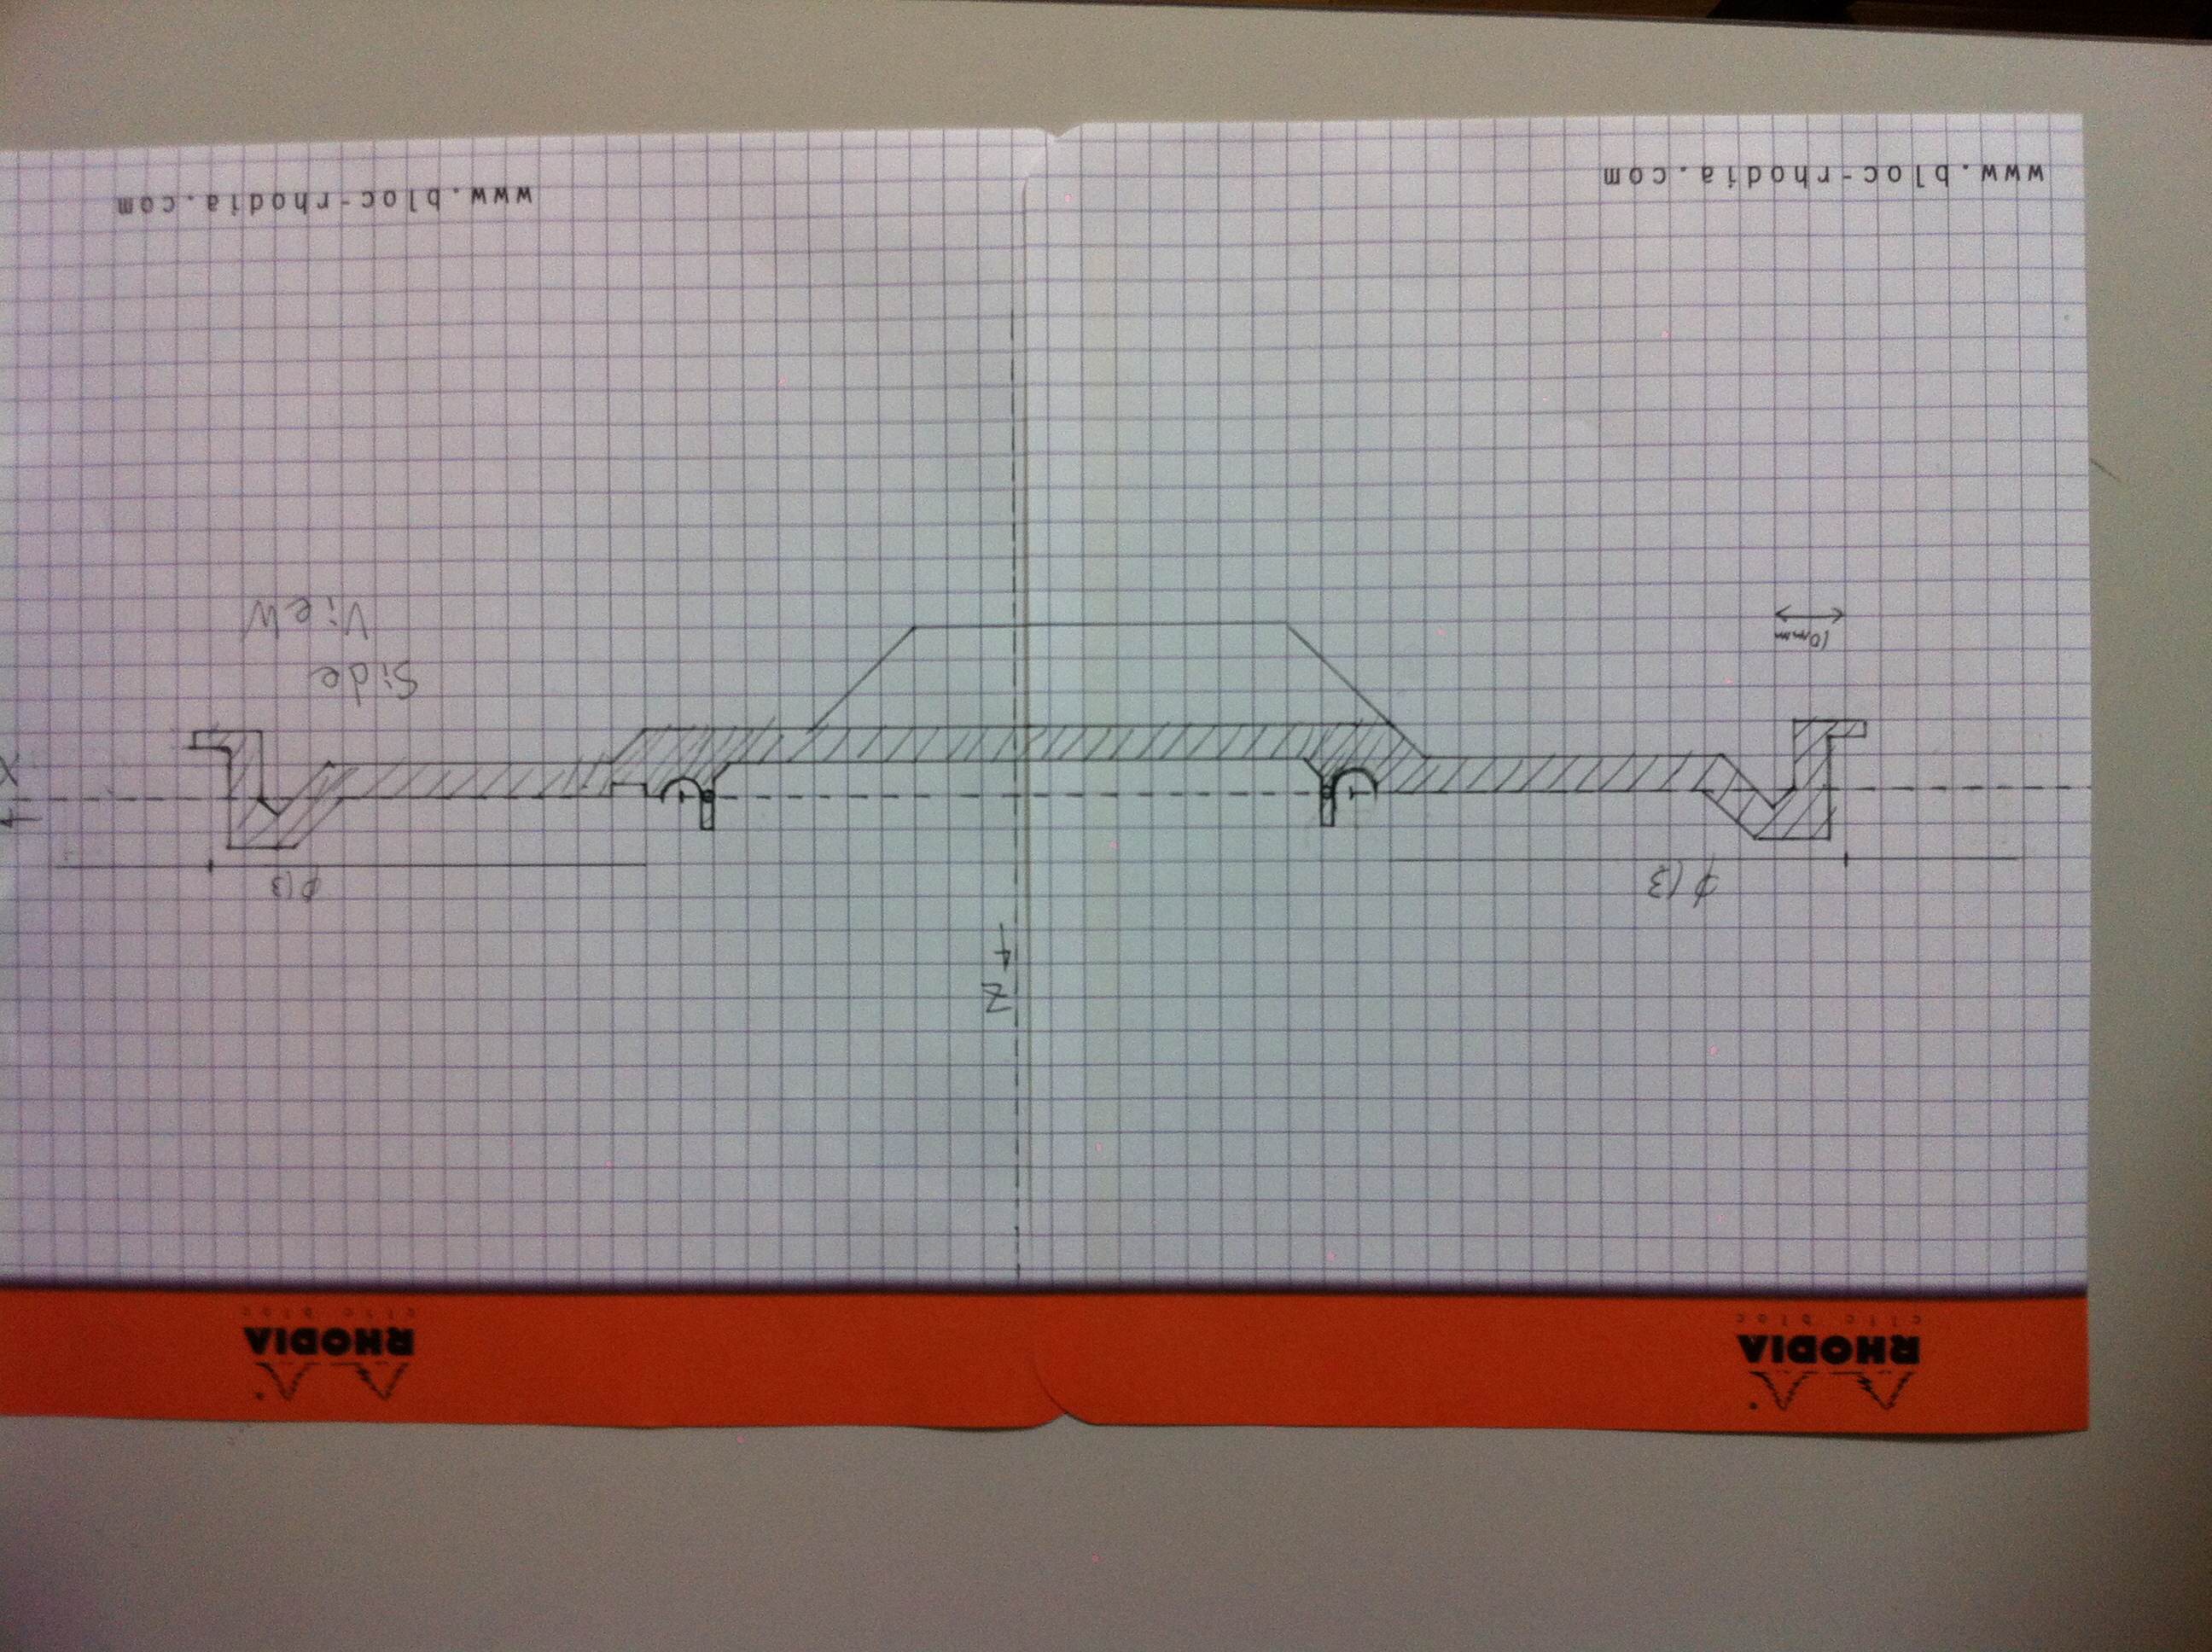 RHODIA
clic bloc
RHODIA
clic bloc
Z
ϕ 13
ϕ 13
X
Side
View
10mm
www.bloc-rhodia.com
www.bloc-rhodia.com